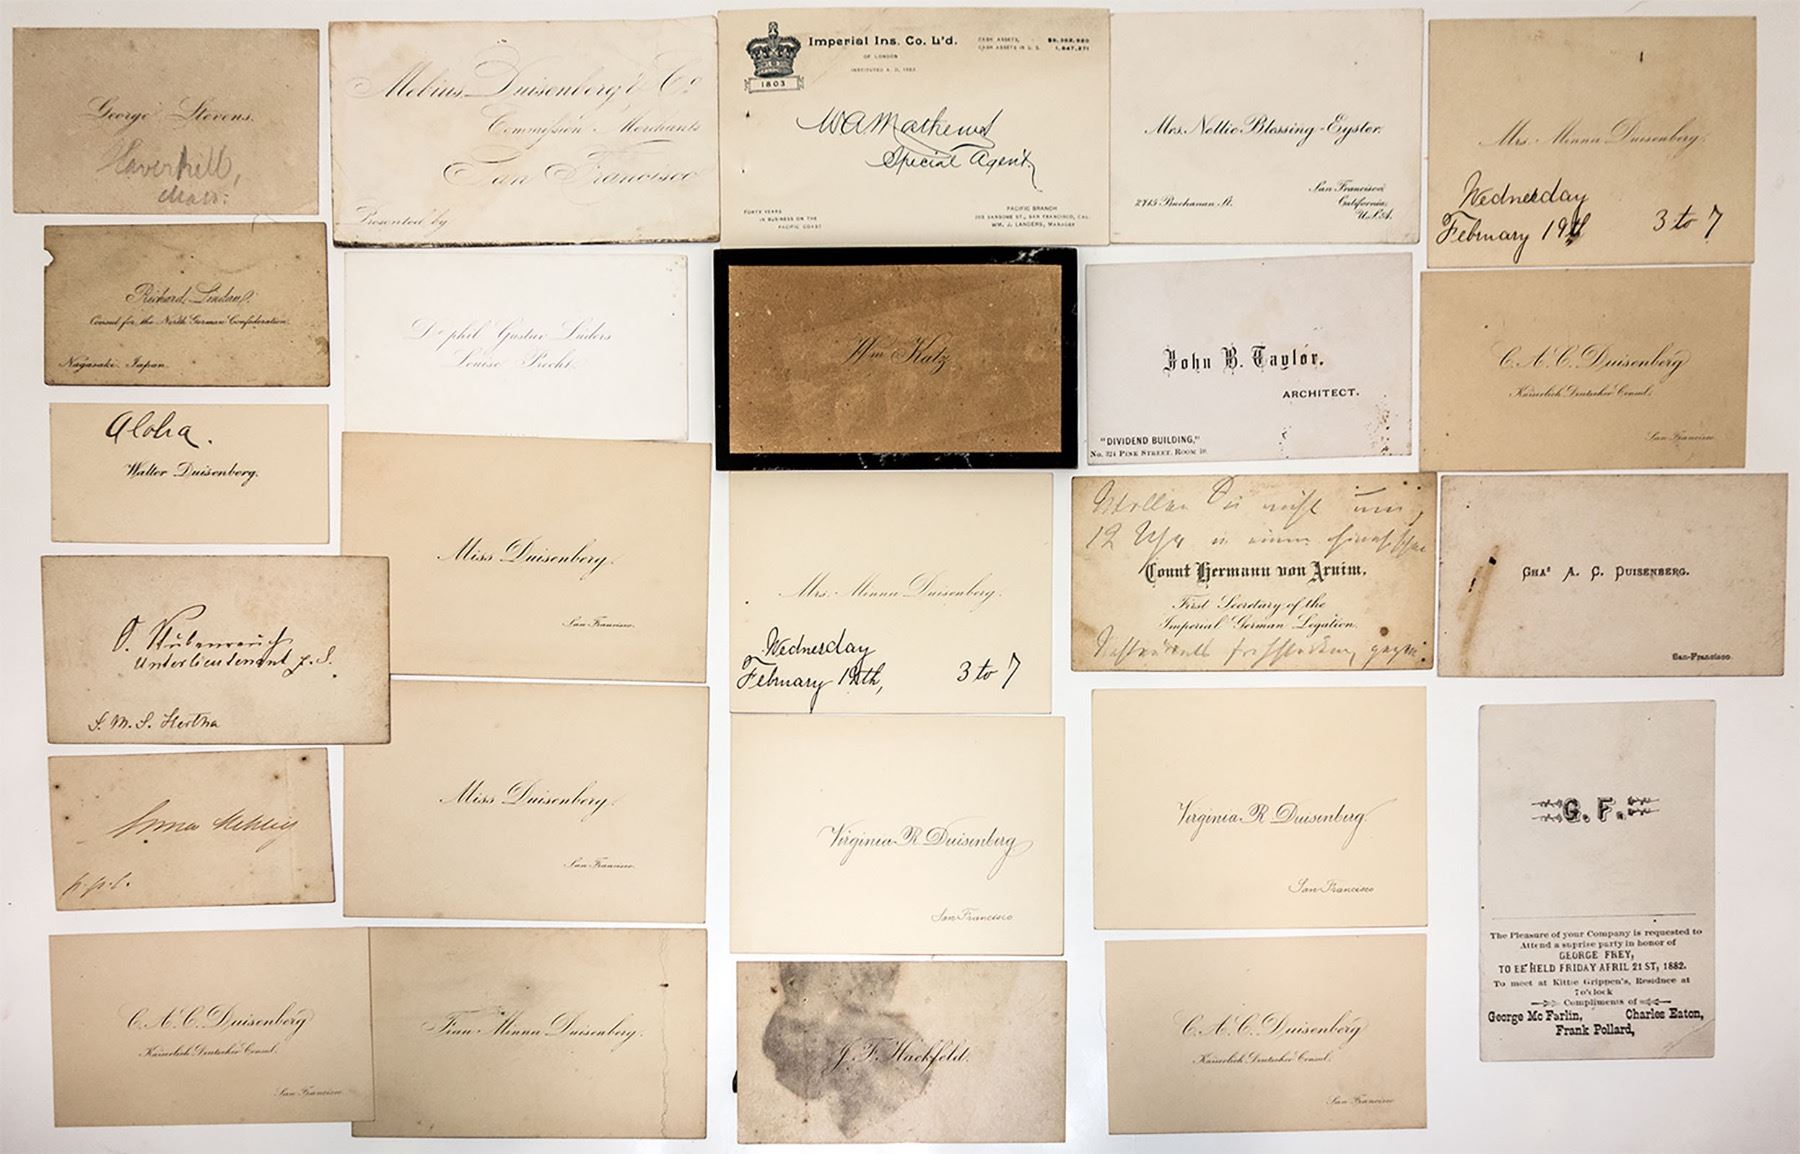 George Stevens.
Haverhill,
Mass:
Mebius, Duisenberg & Co.
Commission Merchants
San Francisco
Presented by
1803
Imperial Ins. Co. L'd.
OF LONDON
INSTITUTED A. D. 1803
CASH ASSETS,
CASH ASSETS IN U. S.
WA Mathews
Special Agent.
FORTY YEARS
IN BUSINESS ON THE
PACIFIC COAST
PACIFIC BRANCH
SANSOME ST., SAN FRANCISCO, CAL.
WM. J. LANDERS, MANAGER
Mrs. Nettie Blessing-Eyster.
2715 Buchanan St.
San Francisco,
California,
U.S.A.
Mrs. Minna Duisenberg.
Wednesday
February 19th 3 to 7
Richard Lindau.
Consul for the North German Confederation.
Nagasaki. Japan.
Dr phil Gustav Lüders
Louise Precht
Wm Katz
John B. Taylor.
ARCHITECT.
"DIVIDEND BUILDING,"
No. 324 PINE STREET. ROOM 10.
C. A. C. Duisenberg
Kaiserlich Deutscher Consul.
San Francisco
Aloha.
Walter Duisenberg.
Miss Duisenberg.
San Francisco.
Mrs. Minna Duisenberg.
Wednesday
February 19th, 3 to 7
Wollen Sie nicht um
12 Uhr in einem
Count Hermann von Arnim.
First Secretary of the
Imperial German Legation.
CHAS A. C. DUISENBERG.
San-Francisco.
Unterlieutenant z. S.
S. M. S. Hertha
Miss Duisenberg.
San Francisco.
Virginia R. Duisenberg
San Francisco
Virginia R. Duisenberg
San Francisco
G. F.
The Pleasure of your Company is requested to
Attend a suprise party in honor of
GEORGE FREY,
TO BE HELD FRIDAY APRIL 21ST, 1882.
To meet at Kittie Grippen's, Residnce at
7 o'clock
Compliments of
George Mc Farlin, Charles Eaton,
Frank Pollard,
p.p.c.
C. A. C. Duisenberg
Kaiserlich Deutscher Consul.
San Francisco
Frau Minna Duisenberg.
J. F. Hackfeld.
C. A. C. Duisenberg
Kaiserlich Deutscher Consul.
San Francisco